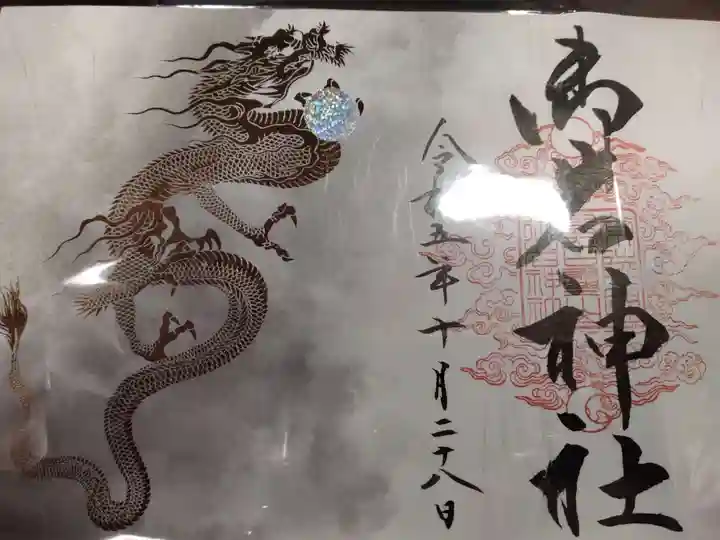 御岩神社
令和五年十月二十八日